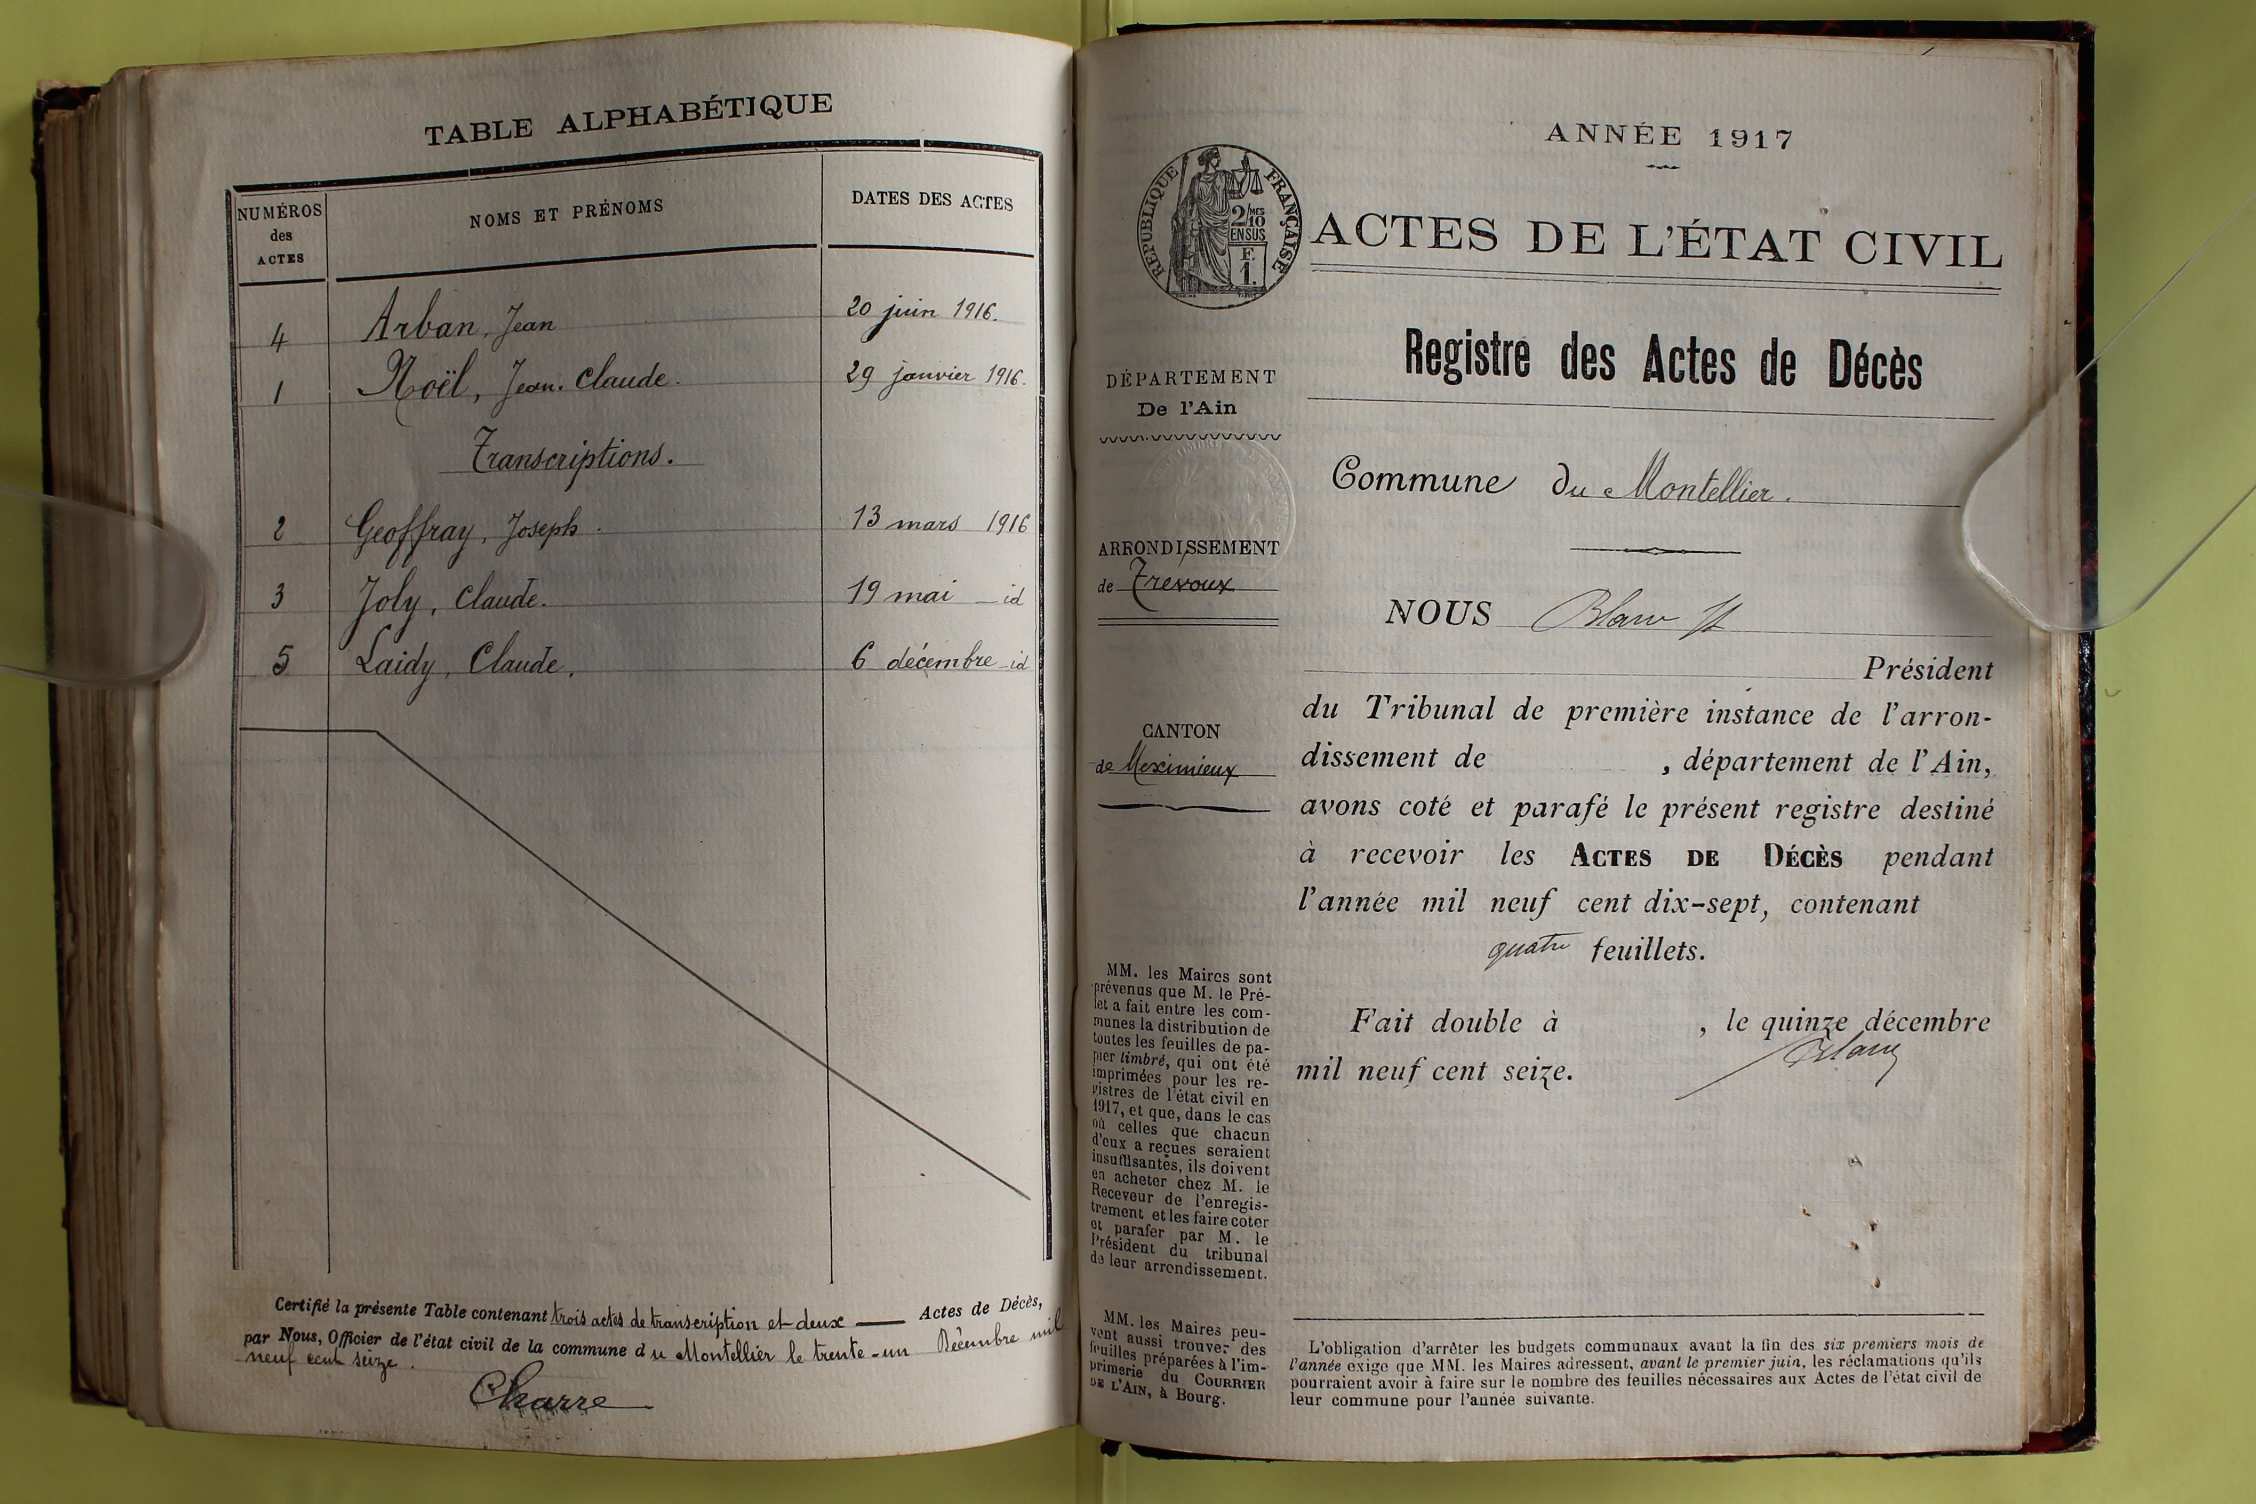 TABLE ALPHABÉTIQUE
NUMÉROS des ACTES
NOMS ET PRÉNOMS
DATES DES ACTES
4 Arban, Jean 20 juin 1916.
1 Noël, Jean-Claude. 29 janvier 1916.
Transcriptions.
2 Geoffray, Joseph. 13 mars 1916
3 Joly, Claude. 19 mai id
5 Laidy, Claude. 6 décembre id
Certifié la présente Table contenant trois actes de transcription et deux — Actes de Décès,
par Nous, Officier de l'état civil de la commune du Montellier le trente-un Décembre mil
neuf cent seize.
Charre
ANNÉE 1917
RÉPUBLIQUE FRANÇAISE
2/10 MES
EN SUS
F.
1.
ACTES DE L'ÉTAT CIVIL
Registre des Actes de Décès
DÉPARTEMENT
De l'Ain
ARRONDISSEMENT
de Trévoux
CANTON
de Meximieux
Commune du Montellier.
NOUS
Président
du Tribunal de première instance de l'arron-
dissement de , département de l'Ain,
avons coté et parafé le présent registre destiné
à recevoir les ACTES DE DÉCÈS pendant
l'année mil neuf cent dix-sept, contenant
quatre feuillets.
Fait double à , le quinze décembre
mil neuf cent seize.
MM. les Maires sont
prévenus que M. le Pré-
fet a fait entre les com-
munes la distribution de
toutes les feuilles de pa-
pier timbré, qui ont été
imprimées pour les re-
gistres de l'état civil en
1917, et que, dans le cas
où celles que chacun
d'eux a reçues seraient
insuffisantes, ils doivent
en acheter chez M. le
Receveur de l'enregis-
trement et les faire coter
et parafer par M. le
Président du tribunal
de leur arrondissement.
MM. les Maires peu-
vent aussi trouver des
feuilles préparées à l'im-
primerie du COURRIER
DE L'AIN, à Bourg.
L'obligation d'arrêter les budgets communaux avant la fin des six premiers mois de
l'année exige que MM. les Maires adressent, avant le premier juin, les réclamations qu'ils
pourraient avoir à faire sur le nombre des feuilles nécessaires aux Actes de l'état civil de
leur commune pour l'année suivante.